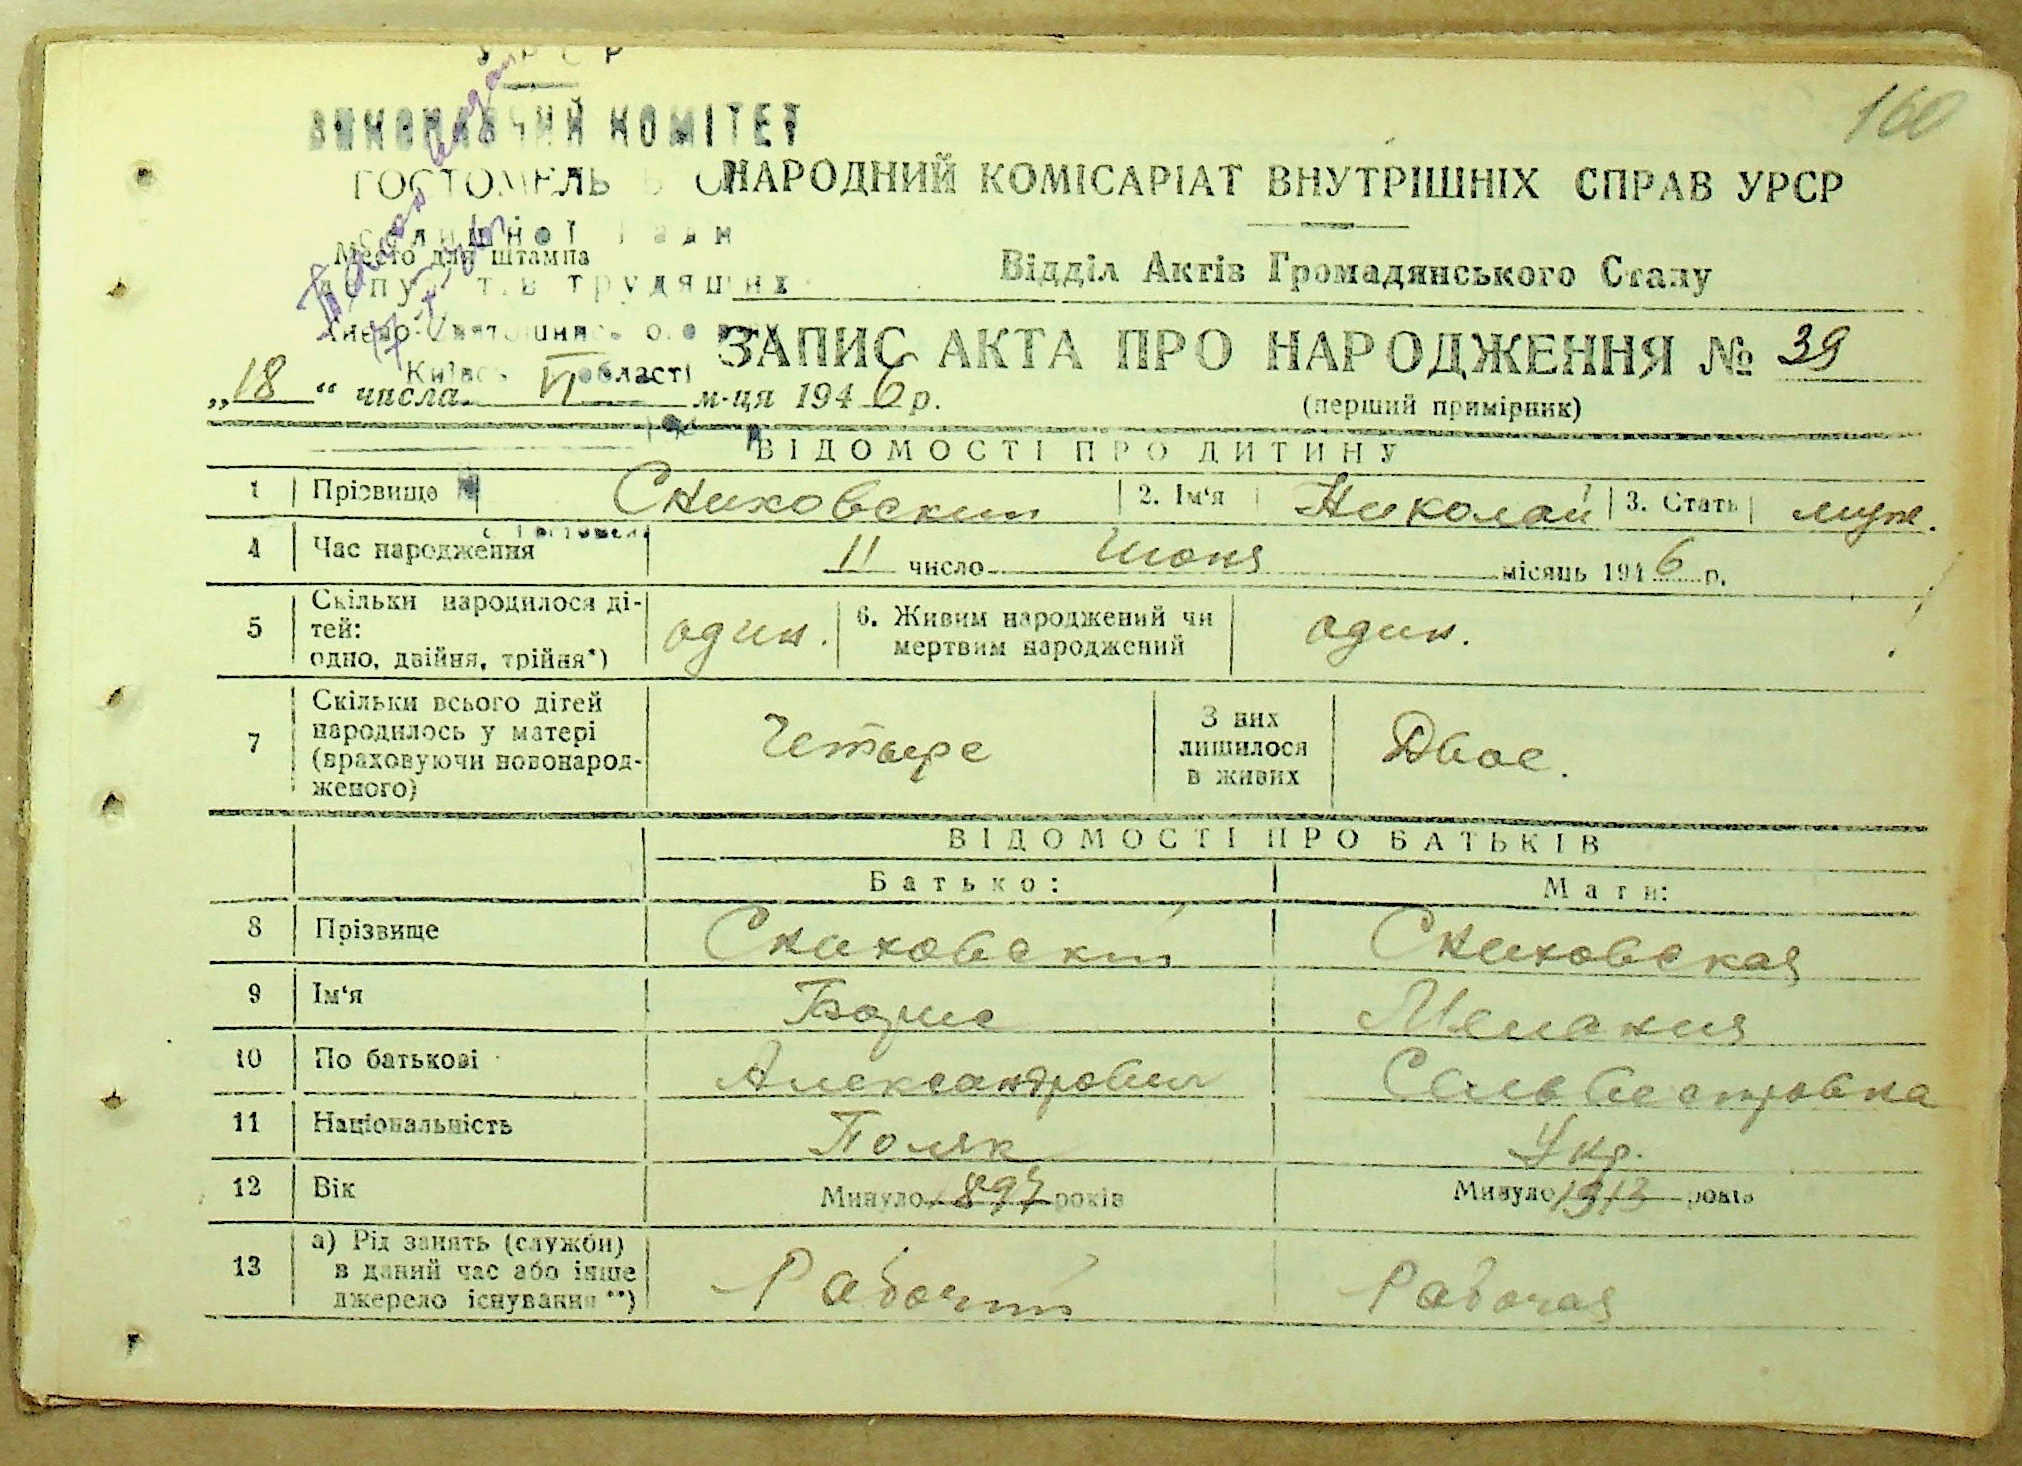 160
ВИКОНАВЧИЙ КОМІТЕТ
ГОСТОМЕЛЬ
НАРОДНИЙ КОМІСАРІАТ ВНУТРІШНІХ СПРАВ УРСР
Место для штампа
Відділ Актів Громадянського Стану
трудящих
ЗАПИС АКТА ПРО НАРОДЖЕННЯ № 39
області
„18“ числа VI м-ця 1946 р.
(перший примірник)
ВІДОМОСТІ ПРО ДИТИНУ
1 Прізвище Снижовский 2. Ім‘я Николай 3. Стать муж.
4 Час народження 11 число Июня місяць 1946 р.
5 Скільки народилося ді-
тей:
одно, двійня, трійня*) один. 6. Живим народжений чи
мертвим народжений один.
7 Скільки всього дітей
народилось у матері
(враховуючи новонарод-
женого) Четыре З них
лишилося
в живих Двое.
ВІДОМОСТІ ПРО БАТЬКІВ
Батько: Мати:
8 Прізвище Снижовский Снижовская
9 Ім‘я Борис Мелания
10 По батькові Александрович Сельвестровна
11 Національність Поляк Укр.
12 Вік Минуло 1897 років Минуло 1913 років
13 а) Рід занять (служби)
в даний час або інше
джерело існування **) Рабочий Рабочая